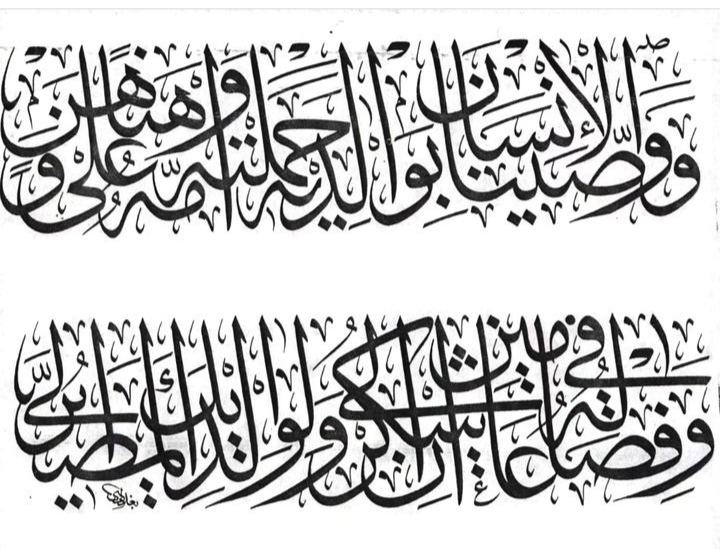 وَوَصَّيْنَا الْإِنسَانَ بِوَالِدَيْهِ حَمَلَتْهُ أُمُّهُ وَهْنًا عَلَىٰ وَهْنٍ
وَفِصَالُهُ فِي عَامَيْنِ أَنِ اشْكُرْ لِي وَلِوَالِدَيْكَ إِلَيَّ الْمَصِيرُ